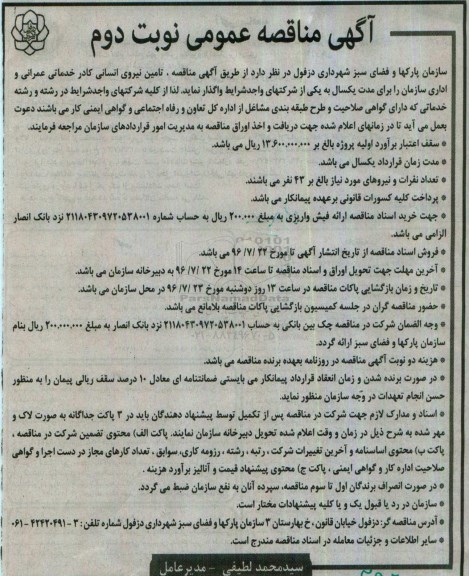 آگهی مناقصه عمومی نوبت دوم
سازمان پارکها و فضای سبز شهرداری دزفول در نظر دارد از طریق آگهی مناقصه ، تامین نیروی انسانی کادر خدماتی عمرانی و
اداری سازمان را برای مدت یکسال به یکی از شرکتهای واجدشرایط واگذار نماید. لذا از کلیه شرکتهای واجدشرایط در رشته و رسته
خدماتی که دارای گواهی صلاحیت و طرح طبقه بندی مشاغل از اداره کل تعاون و رفاه اجتماعی و گواهی ایمنی کار می باشند دعوت
بعمل می آید تا در زمانهای اعلام شده جهت دریافت و اخذ اوراق مناقصه به مدیریت امور قراردادهای سازمان مراجعه فرمایند.
* سقف اعتبار برآورد اولیه پروژه بالغ بر ۱۳.۶۰۰.۰۰۰.۰۰۰ ریال می باشد.
* مدت زمان قرارداد یکسال می باشد.
* تعداد نفرات و نیروهای مورد نیاز بالغ بر ۴۳ نفر می باشند.
* پرداخت کلیه کسورات قانونی برعهده پیمانکار می باشد.
* جهت خرید اسناد مناقصه ارائه فیش واریزی به مبلغ ۲۰۰.۰۰۰ ریال به حساب شماره ۲۱۱۸۰۴۳۰۹۷۲۰۵۳۸۰۰۱ نزد بانک انصار
الزامی می باشد.
* فروش اسناد مناقصه از تاریخ انتشار آگهی تا مورخ ۲۲ /۷/ ۹۶ می باشد.
* آخرین مهلت جهت تحویل اوراق و اسناد مناقصه تا ساعت ۱۴ مورخ ۲۲ /۷/ ۹۶ به دبیرخانه سازمان می باشد.
* تاریخ و زمان بازگشایی پاکات مناقصه در ساعت ۱۳ روز دوشنبه مورخ ۲۳ /۷/ ۹۶ در محل سازمان می باشد.
* حضور مناقصه گران در جلسه کمیسیون بازگشایی پاکات مناقصه بلامانع می باشد.
* وجه الضمان شرکت در مناقصه چک بین بانکی به حساب ۲۱۱۸۰۴۳۰۹۷۲۰۵۳۸۰۰۱ نزد بانک انصار به مبلغ ۲۰۰.۰۰۰.۰۰۰ ریال بنام
سازمان پارکها و فضای سبز ارائه گردد.
* هزینه دو نوبت آگهی مناقصه در روزنامه بعهده برنده مناقصه می باشد.
* در صورت برنده شدن و زمان انعقاد قرارداد پیمانکار می بایستی ضمانتنامه ای معادل ۱۰ درصد سقف ریالی پیمان را به منظور
حسن انجام تعهدات در وجه سازمان منظور نماید.
* اسناد و مدارک لازم جهت شرکت در مناقصه پس از تکمیل توسط پیشنهاد دهندگان باید در ۳ پاکت جداگانه به صورت لاک و
مهر شده به شرح ذیل در زمان و وقت اعلام شده تحویل دبیرخانه سازمان نمایند. پاکت الف) محتوی تضمین شرکت در مناقصه ،
پاکت ب) محتوی اساسنامه و آخرین تغییرات شرکت ، رتبه ، رشته ، رزومه کاری، سوابق ، تعداد کارهای مجاز در دست اجرا و گواهی
صلاحیت اداره کار و گواهی ایمنی ، پاکت ج) محتوی پیشنهاد قیمت و آنالیز برآورد هزینه .
* در صورت انصراف برندگان اول تا سوم مناقصه، سپرده آنان به نفع سازمان ضبط می گردد.
* سازمان در رد یا قبول یک و یا کلیه پیشنهادات مختار است.
* آدرس مناقصه گر: دزفول خیابان قانون ، خ بهارستان ۳ سازمان پارکها و فضای سبز شهرداری دزفول شماره تلفن : ۳ - ۴۲۴۲۰۴۹۱ - ۰۶۱
* سایر اطلاعات و جزئیات معامله در اسناد مناقصه مندرج است.
سیدمحمد لطیفی - مدیرعامل